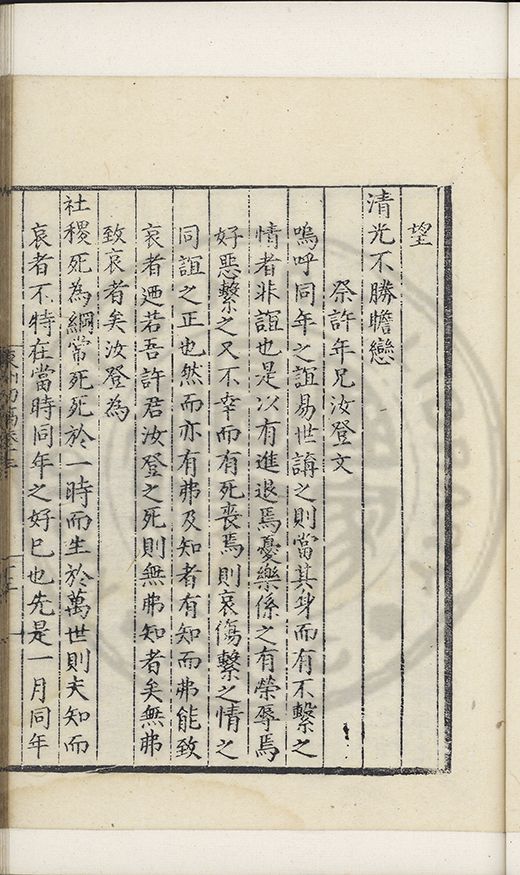 望
清光不勝瞻戀
祭許年兄汝登文
嗚呼同年之誼易世講之則當其身而有不繫之
情者非誼也是以有進退焉憂樂係之有榮辱焉
好惡繫之又不幸而有死喪焉則哀傷繫之情之
同誼之正也然而亦有弗及知者有知而弗能致
哀者迺若吾許君汝登之死則無弗知者矣無弗
致哀者矣汝登為
社稷死為綱常死死於一時而生於萬世則夫知而
哀者不特在當時同年之好已也先是一月同年